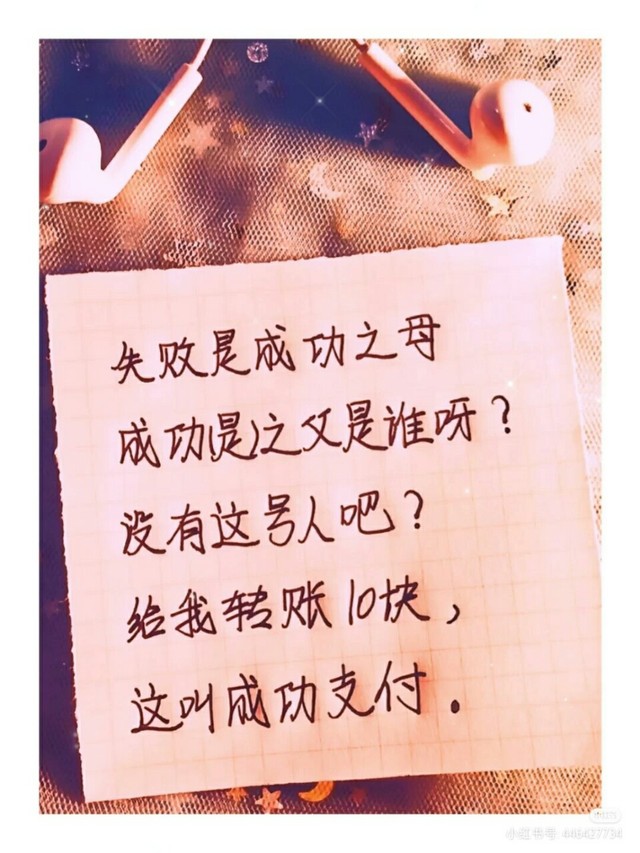 失败是成功之母
成功(是)之父是谁呀？
没有这号人吧？
给我转账10块，
这叫成功支付.
小红书号:446427734